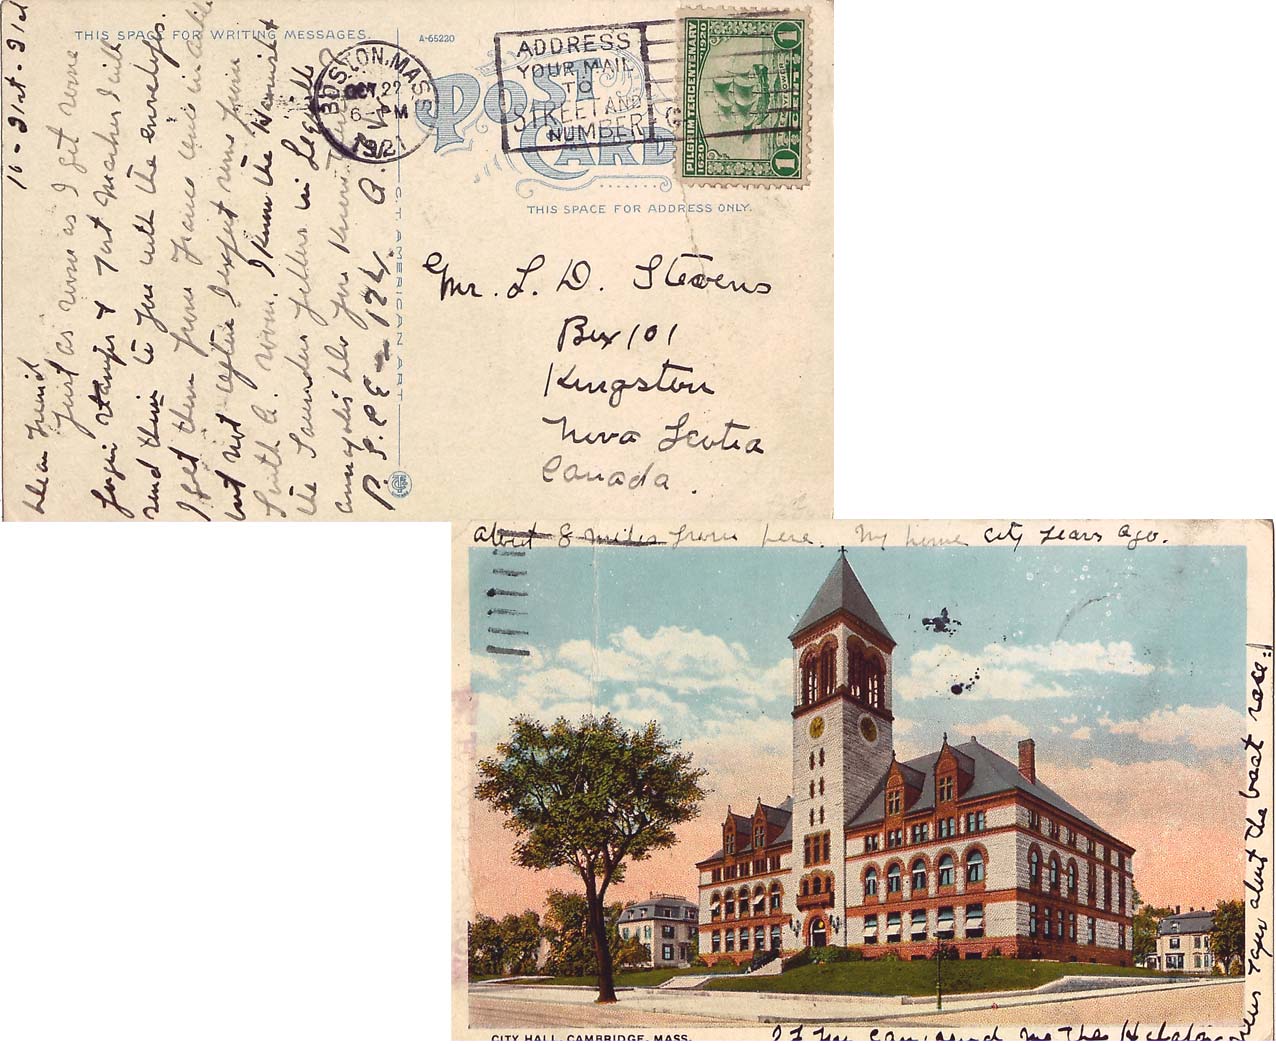 THIS SPACE FOR WRITING MESSAGES.
A-65220
POST CARD
THIS SPACE FOR ADDRESS ONLY.
C.T. AMERICAN ART
BOSTON, MASS.
OCT 22
6 PM
1921
ADDRESS
YOUR MAIL
TO
STREET AND
NUMBER
PILGRIM TERCENTENARY
1620 1920
1 1
10-21st-21st
Dear Friend
Just as soon as I get some
stamps & Post marks I will
send them to you with the envelops.
I get them from France once in a while
but not often I expect some from
South A. soon. I know the Harris
the Saunders fellers in
Annapolis Do you know them?
P.S.P.E - 174. A.
Mr. L. D. Stevens
Box 101
Kingston
Nova Scotia
Canada.
about 8 miles from here. My home city years ago.
If you can send me the Halifax
news paper about the boat race.
CITY HALL, CAMBRIDGE, MASS.